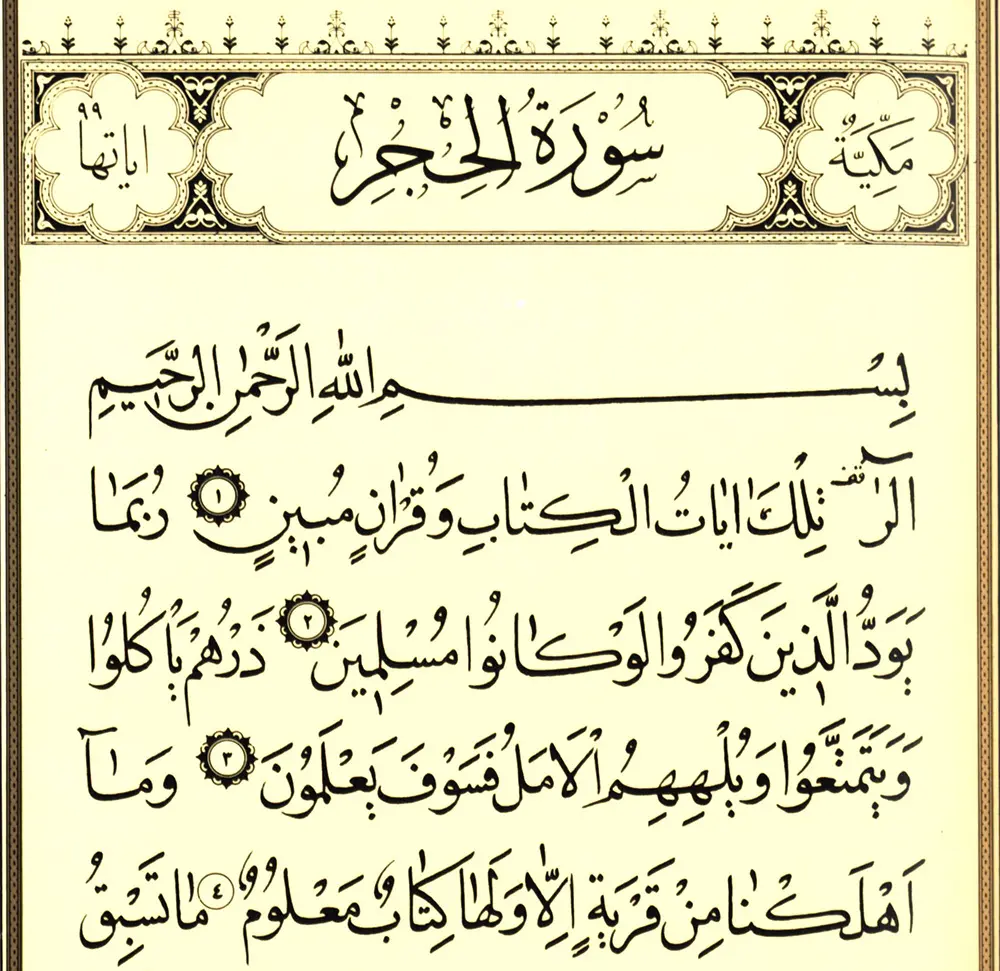 مَكِّيَّةٌ سُورَةُ الْحِجْرِ اٰيَاتُهَا ٩٩
بِسْمِ اللّٰهِ الرَّحْمٰنِ الرَّحِيمِ
الٓرٰ قف تِلْكَ اٰيَاتُ الْكِتَابِ وَقُرْاٰنٍ مُبٖينٍ ١ رُبَمَا
يَوَدُّ الَّذٖينَ كَفَرُوا لَوْ كَانُوا مُسْلِمٖينَ ٢ ذَرْهُمْ يَأْكُلُوا
وَيَتَمَتَّعُوا وَيُلْهِهِمُ الْاَمَلُ فَسَوْفَ يَعْلَمُونَ ٣ وَمَٓا
اَهْلَكْنَا مِنْ قَرْيَةٍ اِلَّا وَلَهَا كِتَابٌ مَعْلُومٌ ٤ مَا تَسْبِقُ